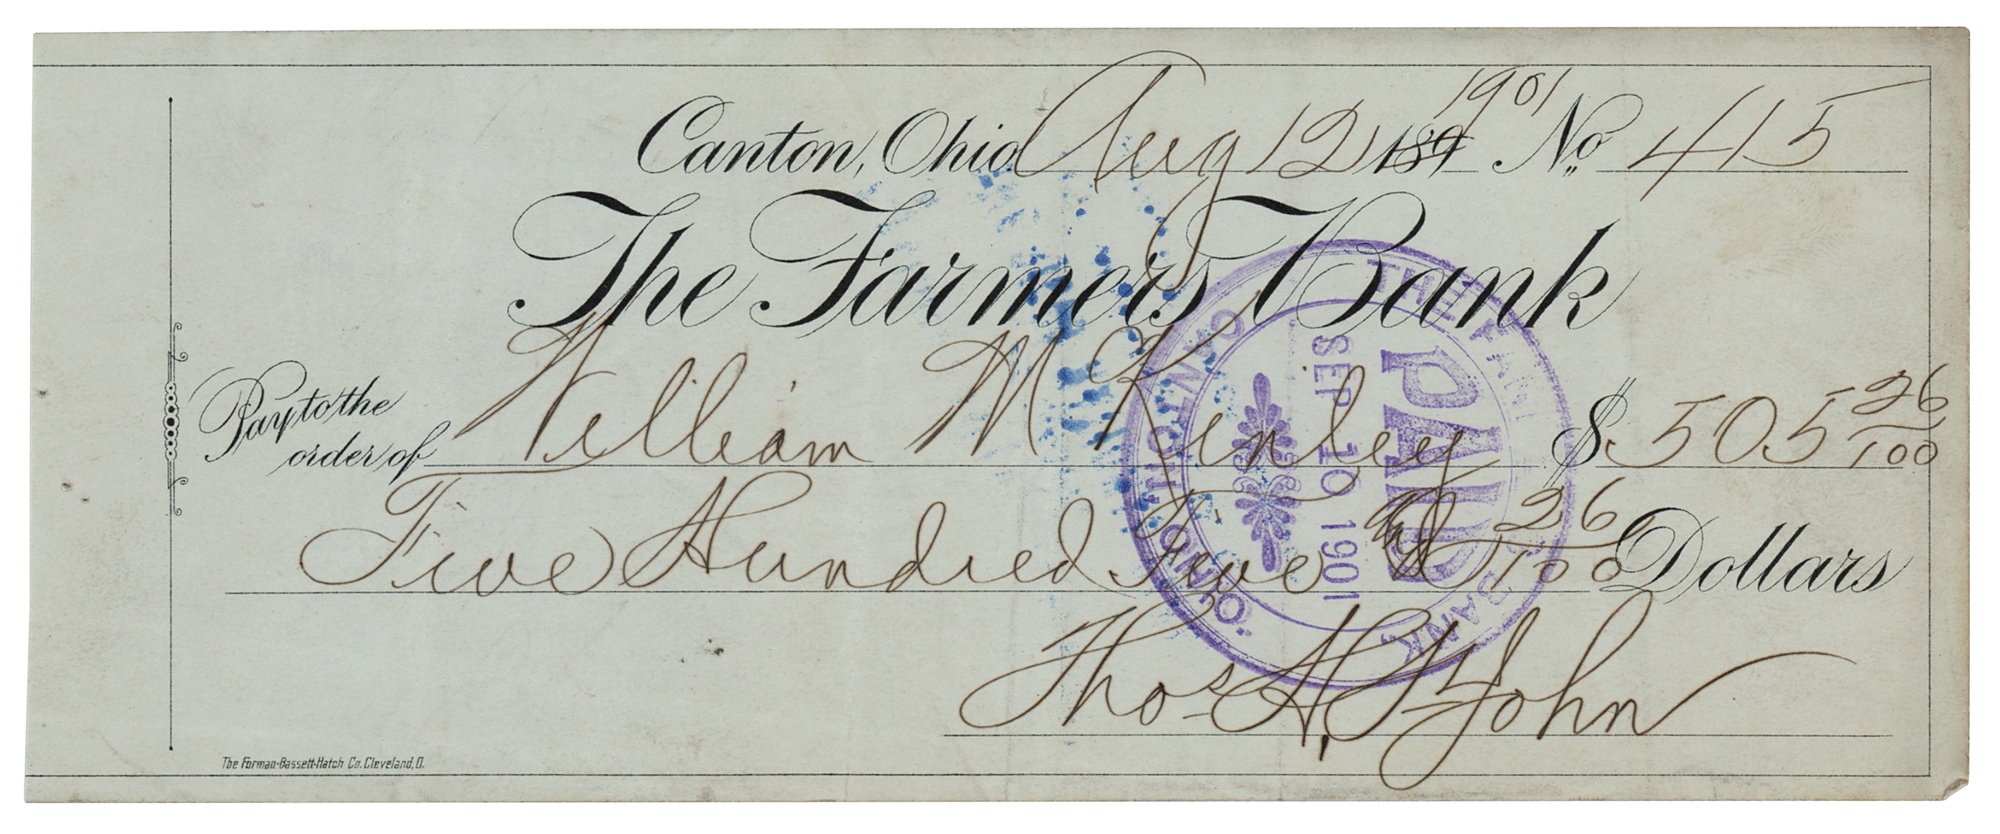 Canton, Ohio Aug 12 189 1901 No. 415
The Farmers Bank
Pay to the
order of William McKinley $ 505 26/100
Five Hundred Five and 26/100 Dollars
Thos. A. St John
THE FARMERS BANK,
PAID
SEP 16 1901
CANTON, OHIO.
The Forman-Bassett-Hatch Co. Cleveland, O.